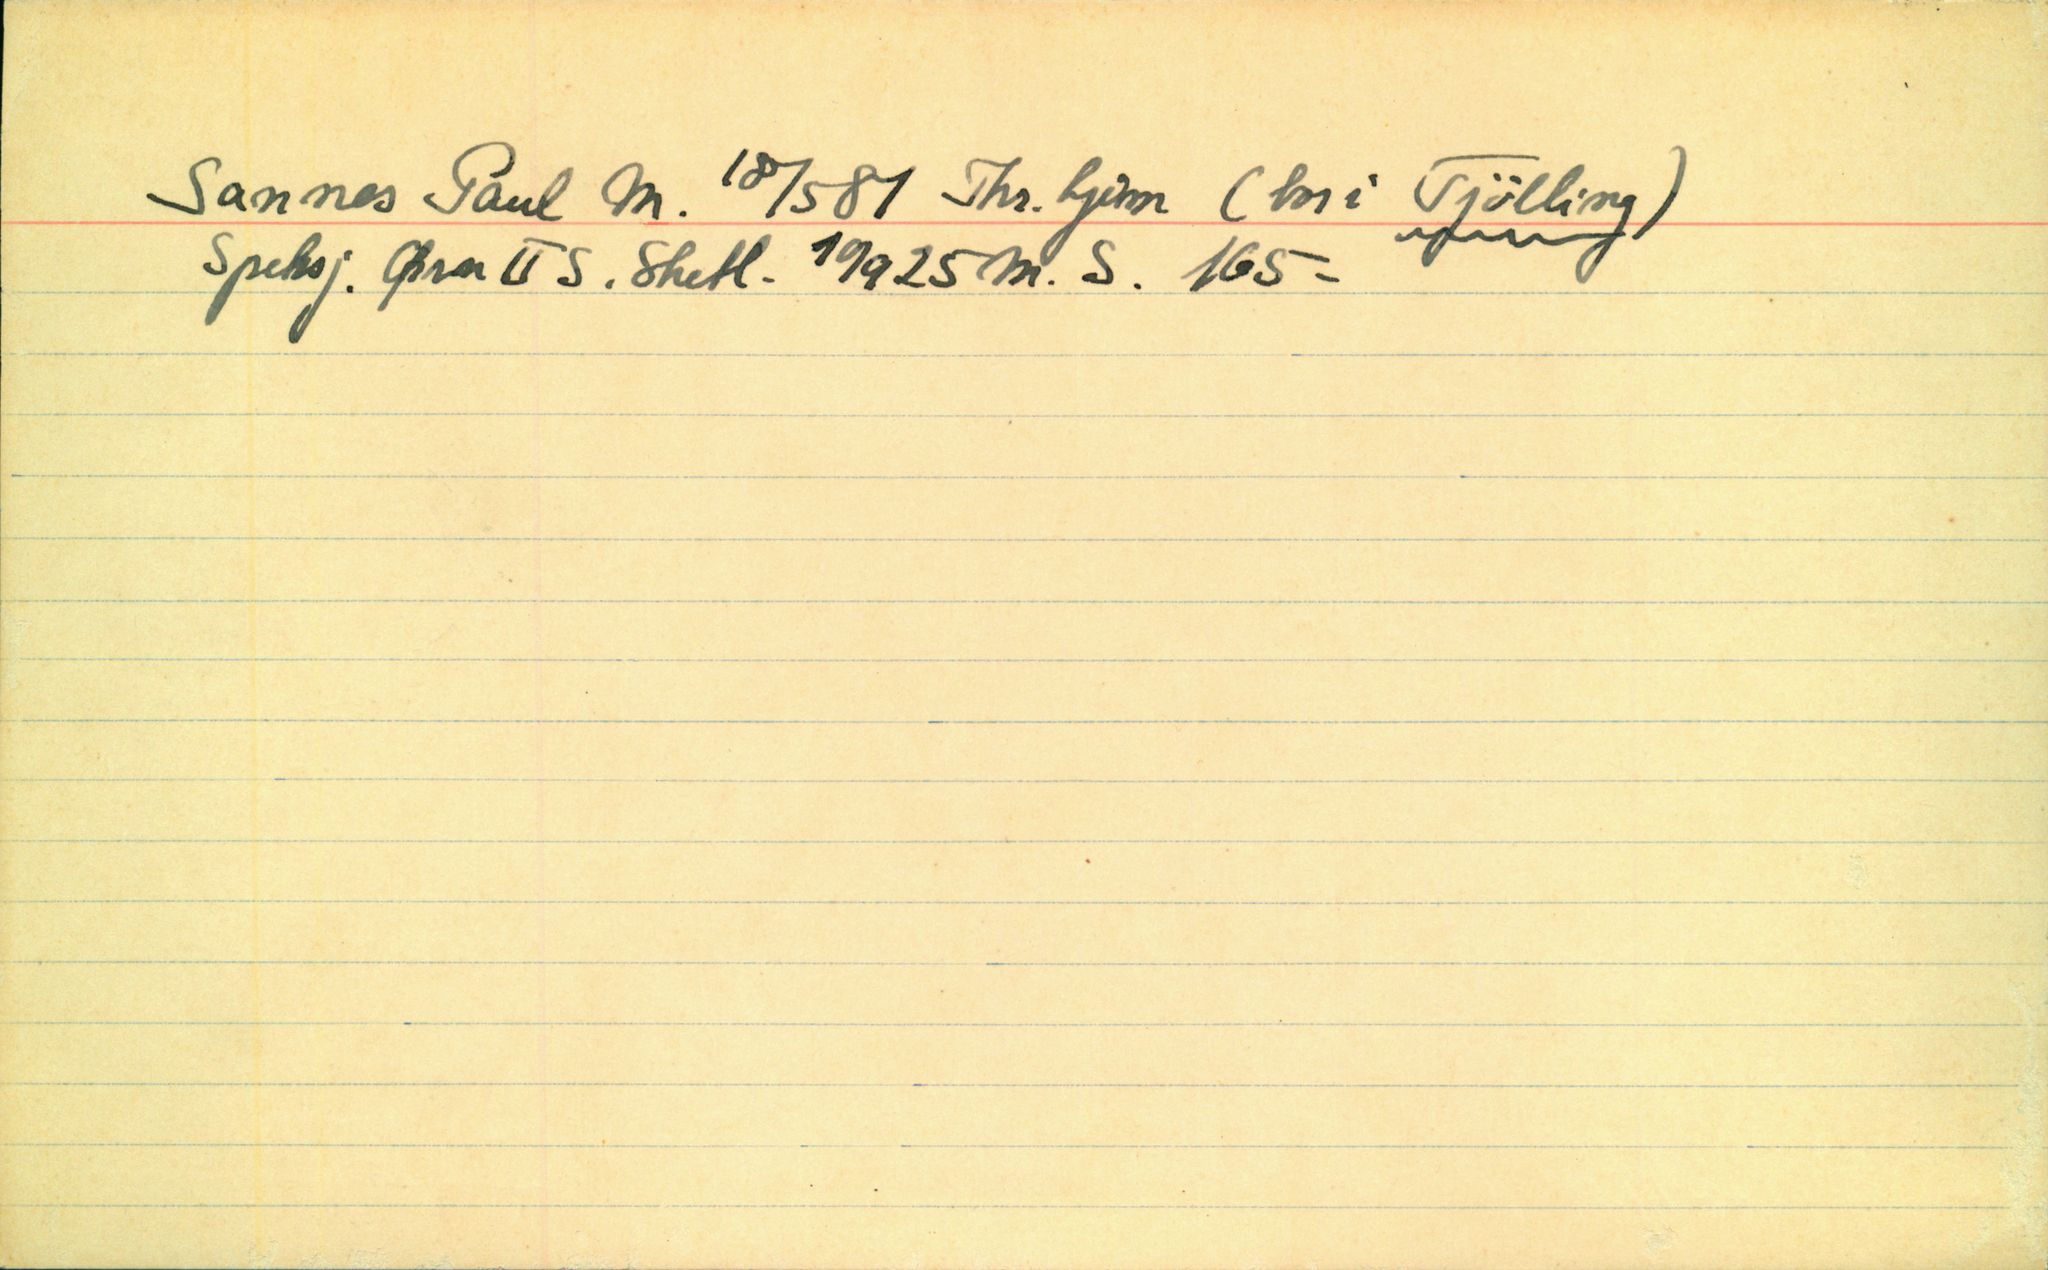 Sannes Paul M. 18/5 81 Thr.hjem (bor i Tjölling)
Speksj. Ørn II S. Shetl. 19/9 25 M. S. 165-